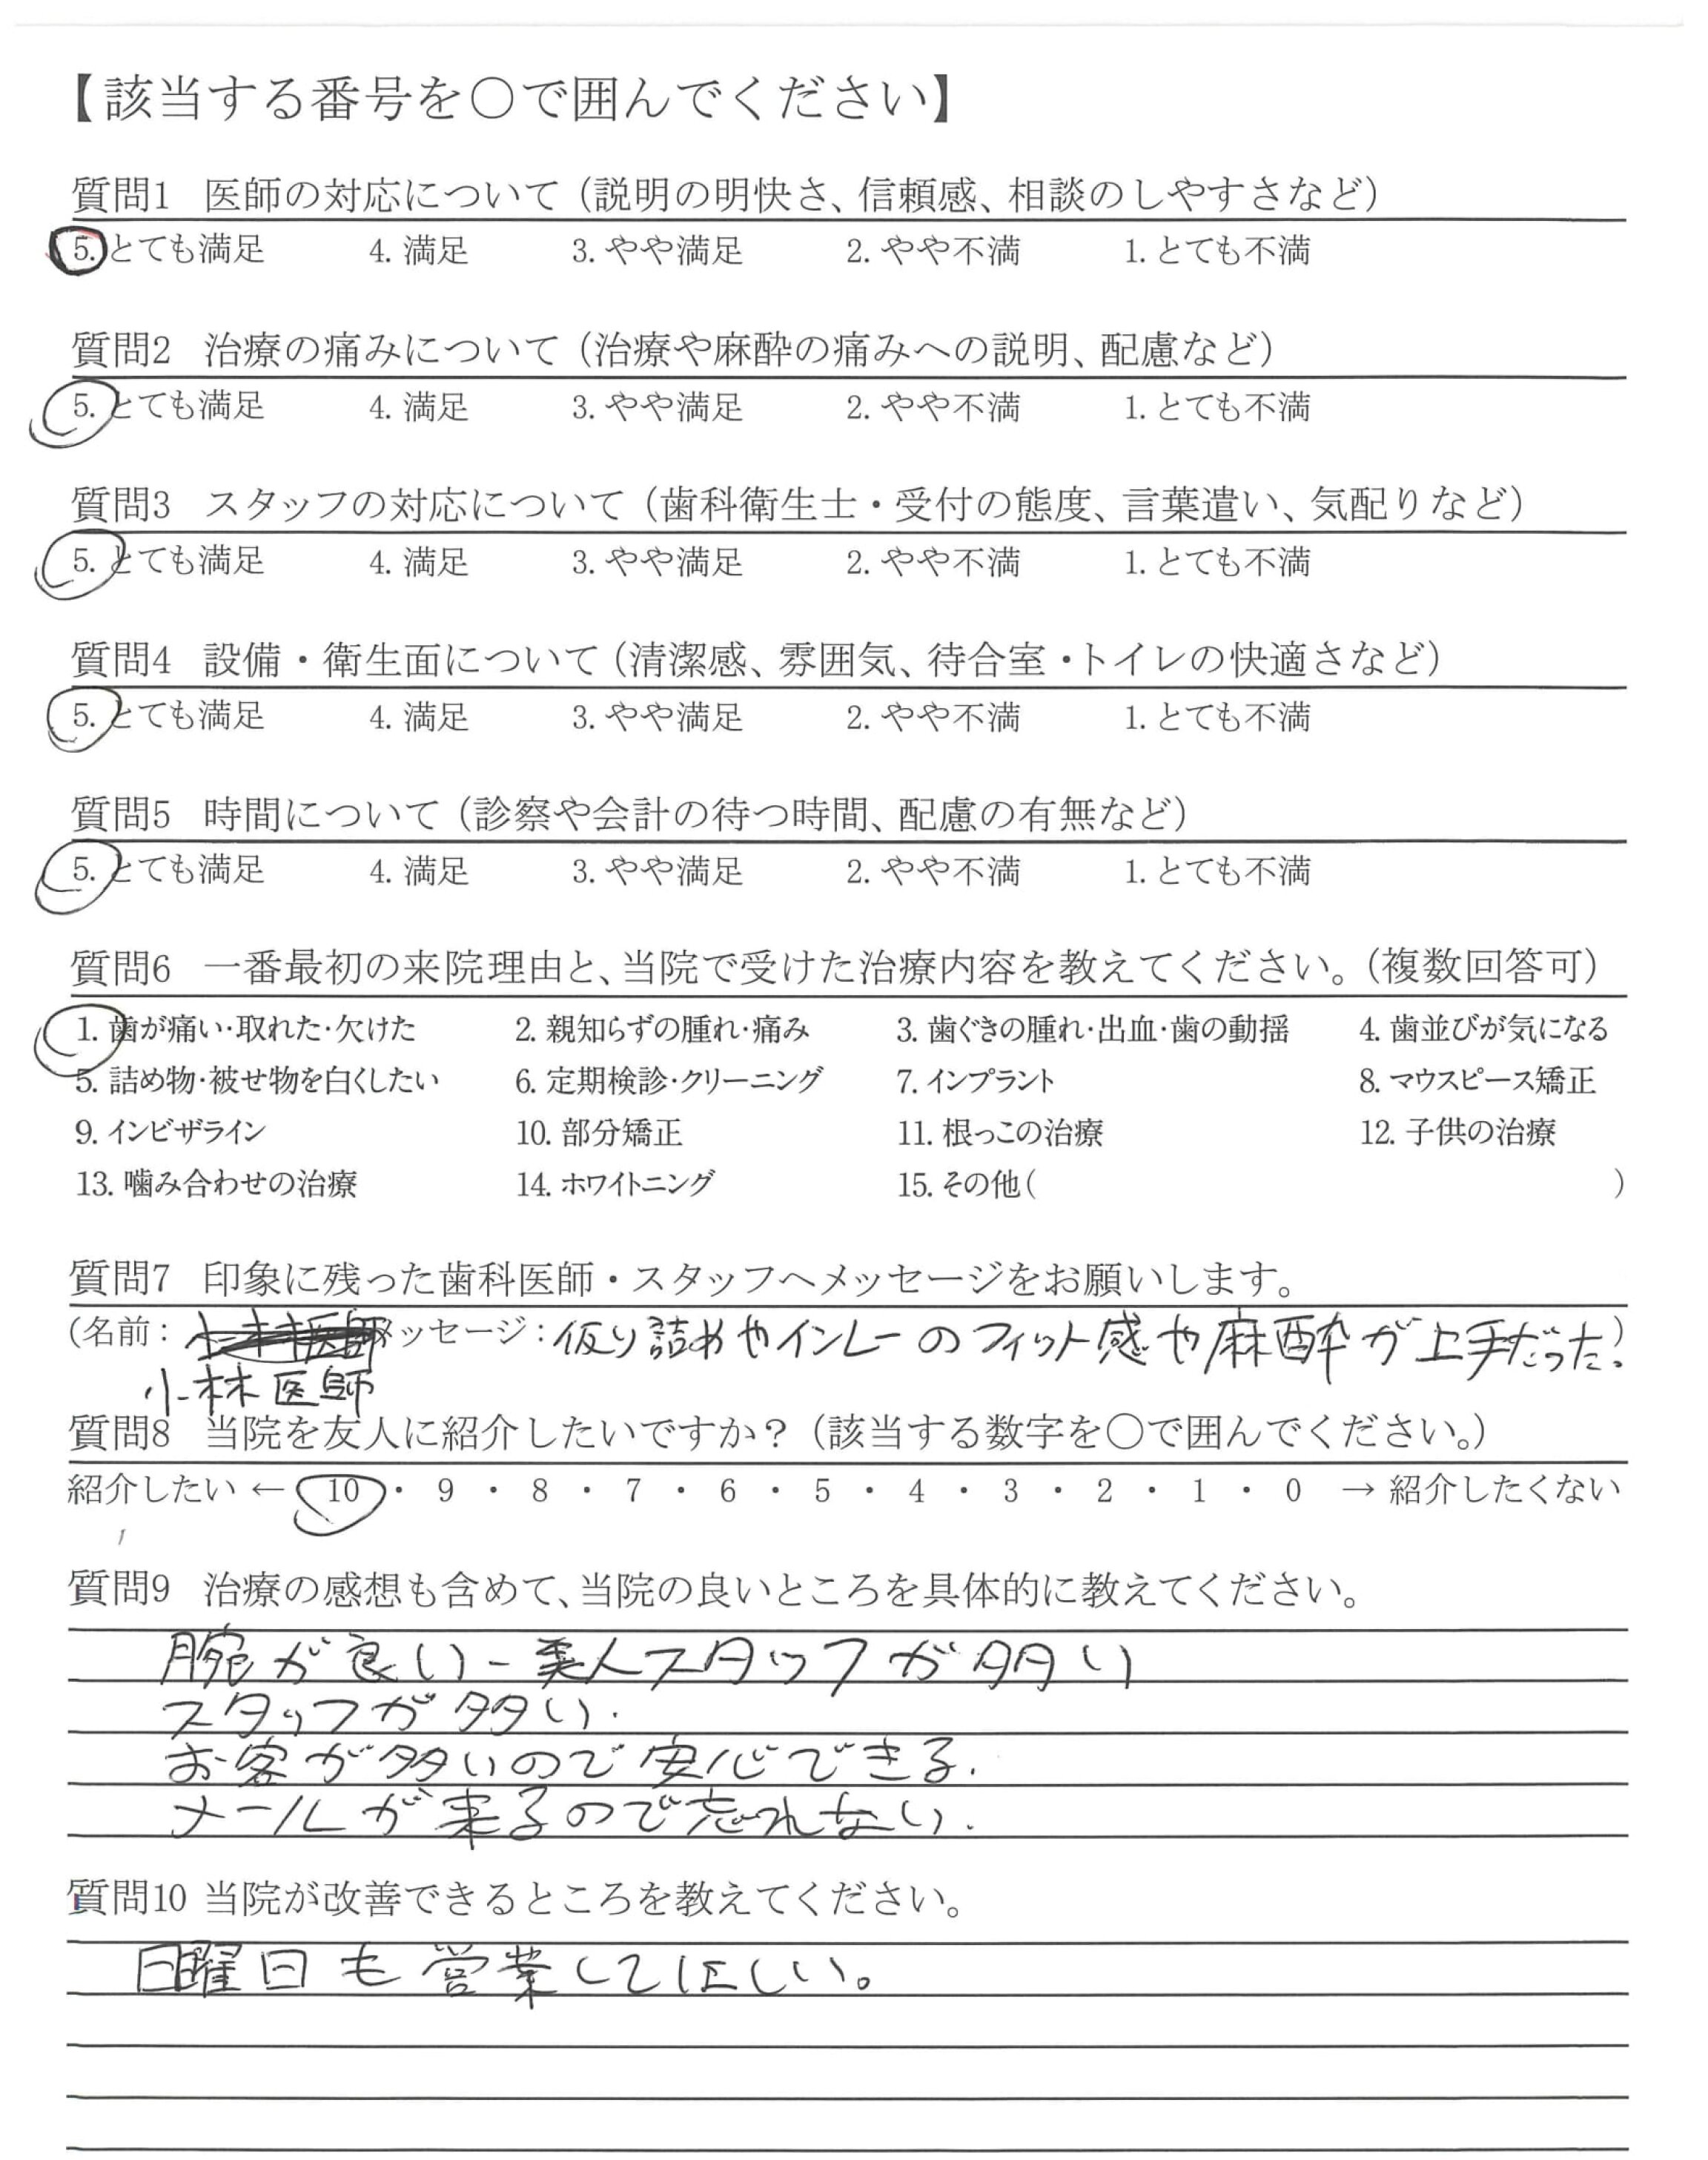 【該当する番号を○で囲んでください】
質問1 医師の対応について（説明の明快さ、信頼感、相談のしやすさなど）
5. とても満足 4. 満足 3. やや満足 2. やや不満 1. とても不満
質問2 治療の痛みについて（治療や麻酔の痛みへの説明、配慮など）
5. とても満足 4. 満足 3. やや満足 2. やや不満 1. とても不満
質問3 スタッフの対応について（歯科衛生士・受付の態度、言葉遣い、気配りなど）
5. とても満足 4. 満足 3. やや満足 2. やや不満 1. とても不満
質問4 設備・衛生面について（清潔感、雰囲気、待合室・トイレの快適さなど）
5. とても満足 4. 満足 3. やや満足 2. やや不満 1. とても不満
質問5 時間について（診察や会計の待つ時間、配慮の有無など）
5. とても満足 4. 満足 3. やや満足 2. やや不満 1. とても不満
質問6 一番最初の来院理由と、当院で受けた治療内容を教えてください。（複数回答可）
1. 歯が痛い・取れた・欠けた 2. 親知らずの腫れ・痛み 3. 歯ぐきの腫れ・出血・歯の動揺 4. 歯並びが気になる
5. 詰め物・被せ物を白くしたい 6. 定期検診・クリーニング 7. インプラント 8. マウスピース矯正
9. インビザライン 10. 部分矯正 11. 根っこの治療 12. 子供の治療
13. 噛み合わせの治療 14. ホワイトニング 15. その他（ ）
質問7 印象に残った歯科医師・スタッフへメッセージをお願いします。
（名前： メッセージ：仮り詰めやインレーのフィット感や麻酔が上手だった。）
小林医師
質問8 当院を友人に紹介したいですか？（該当する数字を○で囲んでください。）
紹介したい ← 10 ・ 9 ・ 8 ・ 7 ・ 6 ・ 5 ・ 4 ・ 3 ・ 2 ・ 1 ・ 0 → 紹介したくない
質問9 治療の感想も含めて、当院の良いところを具体的に教えてください。
腕が良い-美人スタッフが多い
スタッフが多い.
お客が多いので安心できる.
メールが来るので忘れない.
質問10 当院が改善できるところを教えてください。
日曜日も営業してほしい。